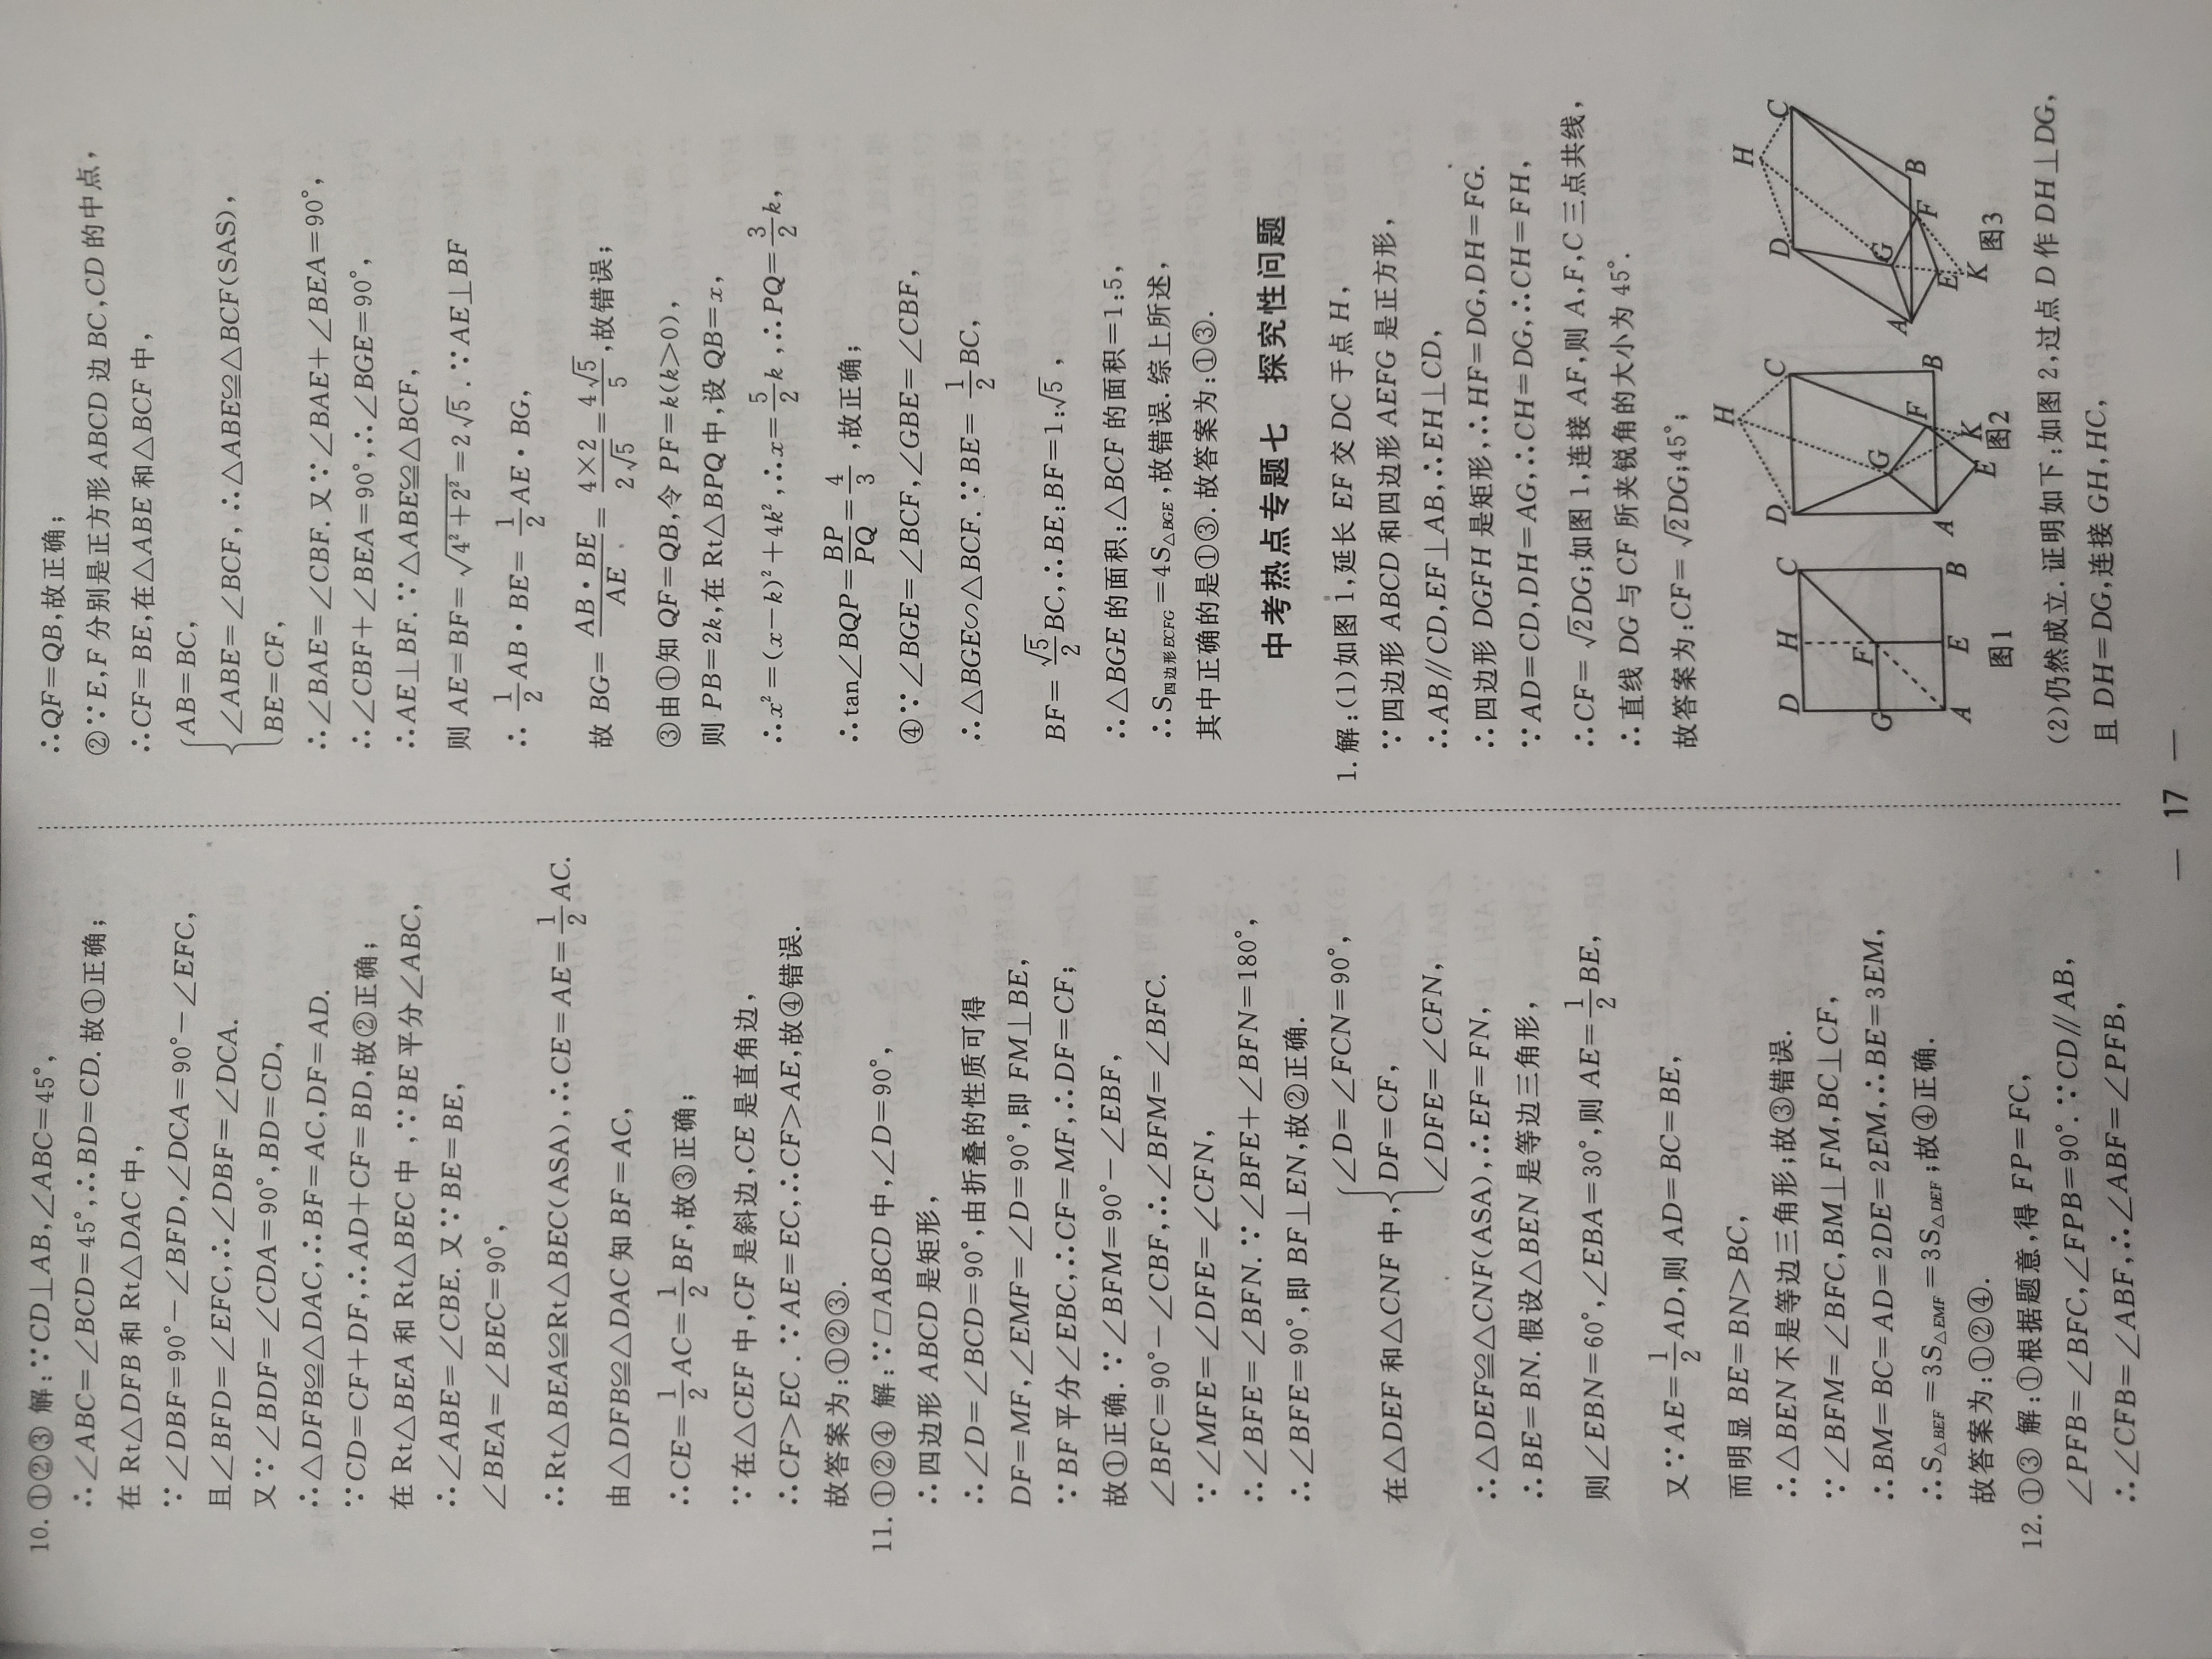 10. ①②③ 解:∵CD⊥AB,∠ABC=45°,
∴∠ABC=∠BCD=45°,∴BD=CD. 故①正确;
在 Rt△DFB 和 Rt△DAC 中,
∵∠DBF=90°-∠BFD,∠DCA=90°-∠EFC,
且∠BFD=∠EFC,∴∠DBF=∠DCA.
又∵∠BDF=∠CDA=90°,BD=CD,
∴△DFB≌△DAC,∴BF=AC,DF=AD.
∵CD=CF+DF,∴AD+CF=BD,故②正确;
在 Rt△BEA 和 Rt△BEC 中,∵BE 平分∠ABC,
∴∠ABE=∠CBE. 又∵BE=BE,
∠BEA=∠BEC=90°,
∴Rt△BEA≌Rt△BEC(ASA),∴CE=AE=1/2AC.
由△DFB≌△DAC 知 BF=AC,
∴CE=1/2AC=1/2BF,故③正确;
∵在△CEF 中,CF 是斜边,CE 是直角边,
∴CF>EC. ∵AE=EC,∴CF>AE,故④错误.
故答案为:①②③.
11. ①②④ 解:∵▱ABCD 中,∠D=90°,
∴四边形 ABCD 是矩形,
∴∠D=∠BCD=90°,由折叠的性质可得
DF=MF,∠EMF=∠D=90°,即 FM⊥BE,
∵BF 平分∠EBC,∴CF=MF,∴DF=CF;
故①正确. ∵∠BFM=90°-∠EBF,
∠BFC=90°-∠CBF,∴∠BFM=∠BFC.
∵∠MFE=∠DFE=∠CFN,
∴∠BFE=∠BFN. ∵∠BFE+∠BFN=180°,
∴∠BFE=90°,即 BF⊥EN,故②正确.
在△DEF 和△CNF 中,{∠D=∠FCN=90°,
DF=CF,
∠DFE=∠CFN,
∴△DEF≌△CNF(ASA),∴EF=FN,
∴BE=BN. 假设△BEN 是等边三角形,
则∠EBN=60°,∠EBA=30°,则 AE=1/2BE,
又∵AE=1/2AD,则 AD=BC=BE,
而明显 BE=BN>BC,
∴△BEN 不是等边三角形;故③错误.
∵∠BFM=∠BFC,BM⊥FM,BC⊥CF,
∴BM=BC=AD=2DE=2EM,∴BE=3EM,
∴S△BEF=3S△EMF=3S△DEF;故④正确.
故答案为:①②④.
12. ①③ 解:①根据题意,得 FP=FC,
∠PFB=∠BFC,∠FPB=90°. ∵CD∥AB,
∴∠CFB=∠ABF,∴∠ABF=∠PFB,
∴QF=QB,故正确;
②∵E,F 分别是正方形 ABCD 边 BC,CD 的中点,
∴CF=BE,在△ABE 和△BCF 中,
{AB=BC,
∠ABE=∠BCF,∴△ABE≌△BCF(SAS),
BE=CF,
∴∠BAE=∠CBF. 又∵∠BAE+∠BEA=90°,
∴∠CBF+∠BEA=90°,∴∠BGE=90°,
∴AE⊥BF. ∵△ABE≌△BCF,
则 AE=BF=√(4²+2²)=2√5. ∵AE⊥BF
∴1/2AB·BE=1/2AE·BG,
故 BG=AB·BE/AE=4×2/2√5=4√5/5,故错误;
③由①知 QF=QB,令 PF=k(k>0),
则 PB=2k,在 Rt△BPQ 中,设 QB=x,
∴x²=(x-k)²+4k²,∴x=5/2k,∴PQ=3/2k,
∴tan∠BQP=BP/PQ=4/3,故正确;
④∵∠BGE=∠BCF,∠GBE=∠CBF,
∴△BGE∽△BCF. ∵BE=1/2BC,
BF=√5/2BC,∴BE:BF=1:√5,
∴△BGE 的面积:△BCF 的面积=1:5,
∴S四边形ECFG=4S△BGE,故错误. 综上所述,
其中正确的是①③. 故答案为:①③.
中考热点专题七 探究性问题
1. 解:(1)如图 1,延长 EF 交 DC 于点 H,
∵四边形 ABCD 和四边形 AEFG 是正方形,
∴AB∥CD,EF⊥AB,∴EH⊥CD,
∴四边形 DGFH 是矩形,∴HF=DG,DH=FG.
∵AD=CD,DH=AG,∴CH=DG,∴CH=FH,
∴CF=√2DG;如图 1,连接 AF,则 A,F,C 三点共线,
∴直线 DG 与 CF 所夹锐角的大小为 45°.
故答案为:CF=√2DG;45°;
D H C G F A E B
图1
H D C G F B A E K
图2
H D C G F B A E K
图3
(2)仍然成立. 证明如下:如图 2,过点 D 作 DH⊥DG,
且 DH=DG,连接 GH,HC,
— 17 —